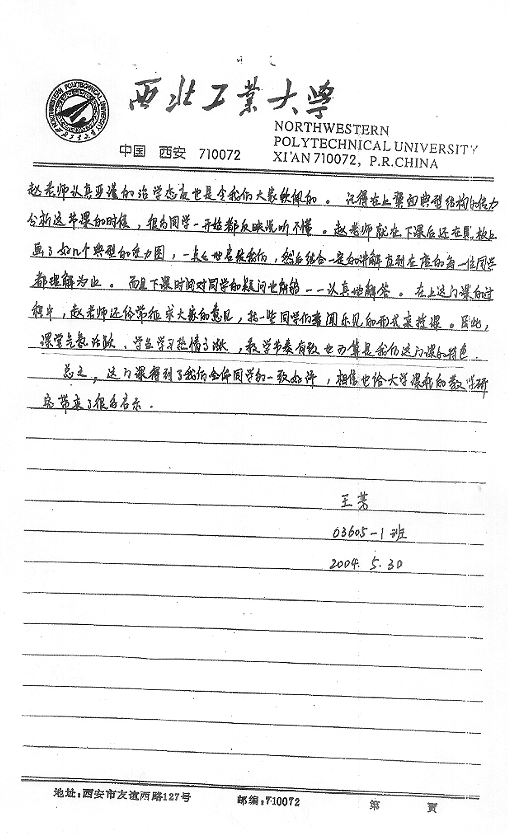 西北工业大学
NORTHWESTERN
POLYTECHNICAL UNIVERSITY
中国 西安 710072
XI'AN 710072, P.R.CHINA
赵老师认真严谨的治学态度也是令我们大家钦佩的。记得在上翼面典型结构的受力
分析这节课的时候，很多同学一开始都反映说听不懂。赵老师就在下课后还在黑板上
画了好几个典型的受力图，一点点地启发我们，然后结合一定的讲解直到在座的每一位同学
都理解为止。而且下课时间对同学的疑问也能够一一认真地解答。在上这门课的过
程中，赵老师还经常征求大家的意见，找一些同学们喜闻乐见的形式来授课。因此，
课堂气氛活跃、学生学习热情高涨，教学节奏有致也可算是我们这门课的特色。
总之，这门课得到了我们全体同学的一致好评，相信也给大学课程的教学研
究带来了很多启示。
王
03605-1班
2004.5.30
地址：西安市友谊西路127号
邮编：710072
第 頁